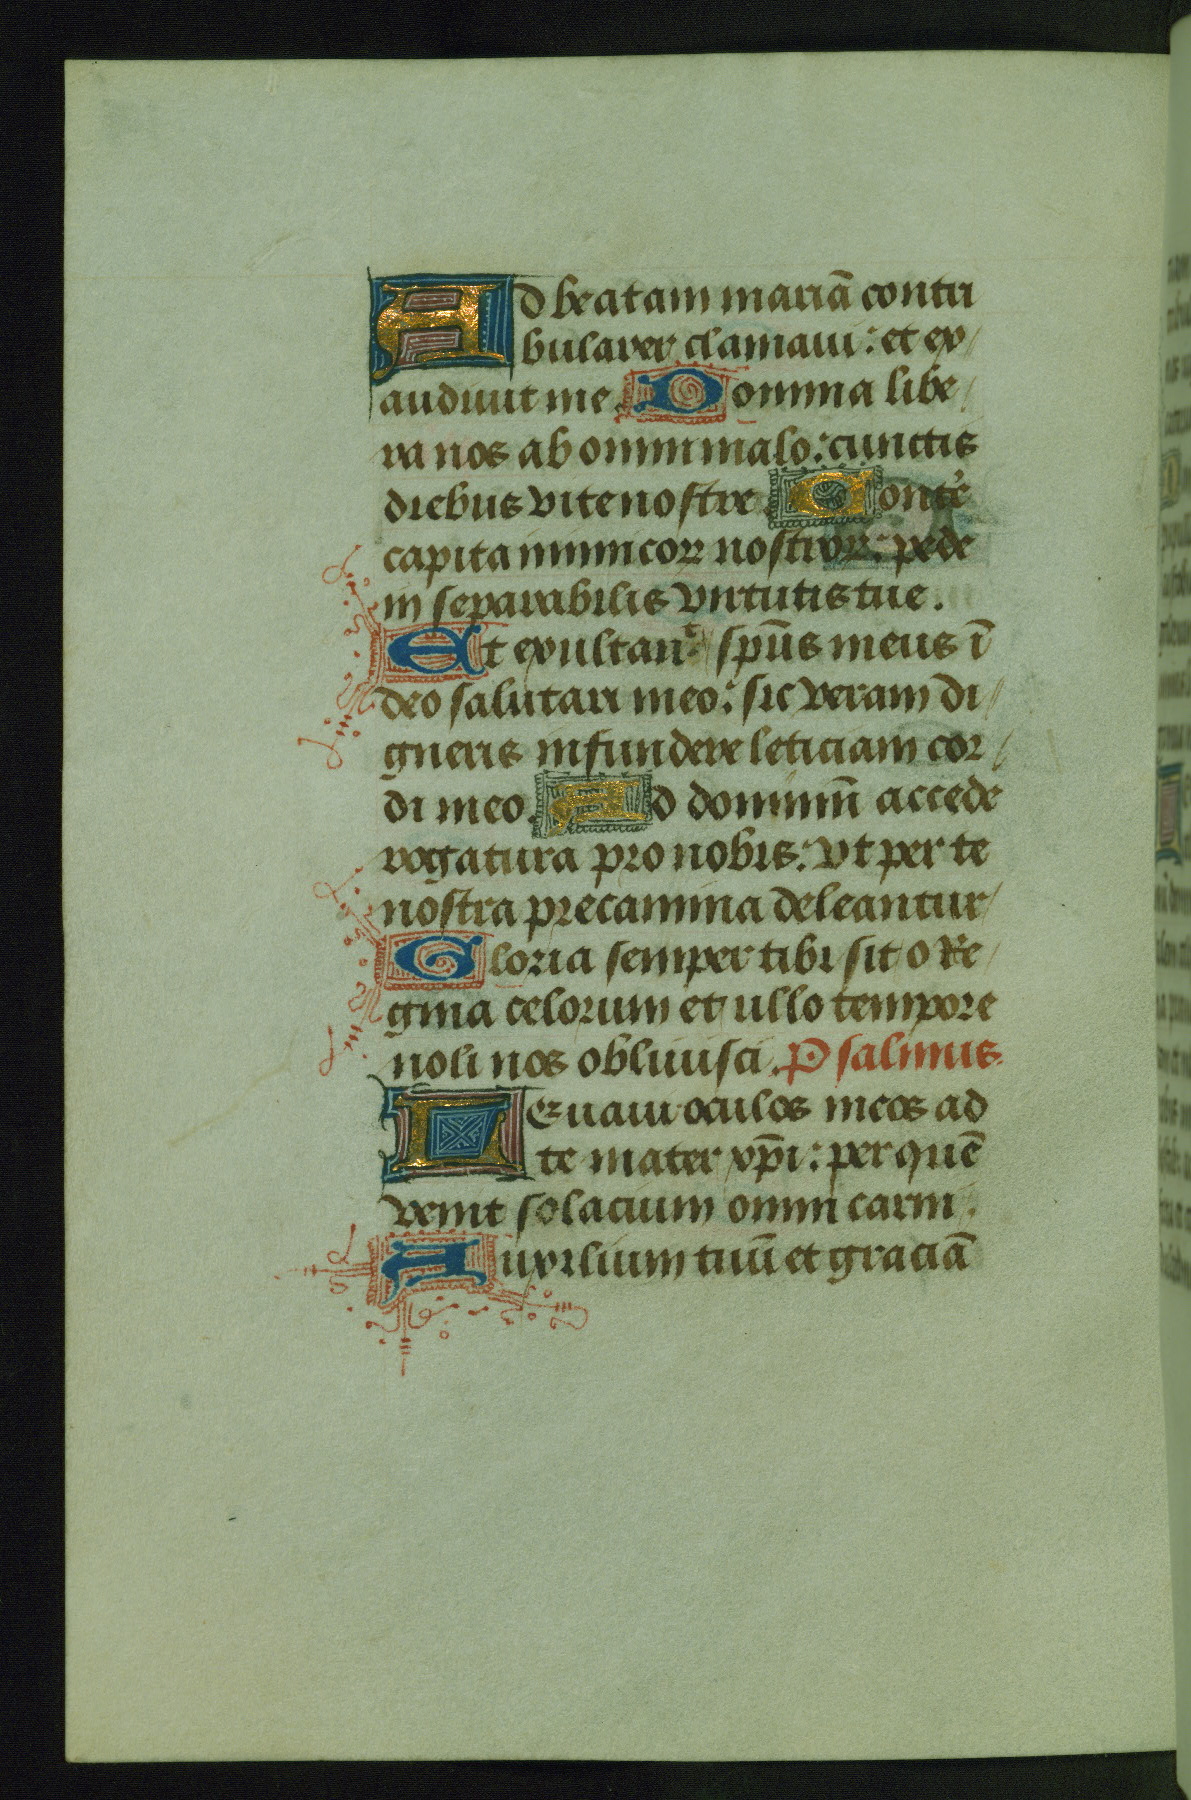 Ad beatam mariā contri
bularer clamaui: et ex
audiuit me. Domina libe
ra nos ab omni malo: cunctis
diebus vite nostre. Conte
capita inimicoꝝ nostroꝝ: pede
inseparabilis virtutis tue.
Et exultauit spūs meus ī
deo salutari meo: sic veram di
gneris infundere leticiam cor
di meo. Ad dominū accede
rogatura pro nobis: vt per te
nostra precamina deleantur
Gloria semper tibi sit o Re
gina celorum et ullo tempore
noli nos obliuisci. Psalmus.
Leuaui oculos meos ad
te mater xp̄i: per quē
venit solacium omni carni.
Auxilium tuū et graciā